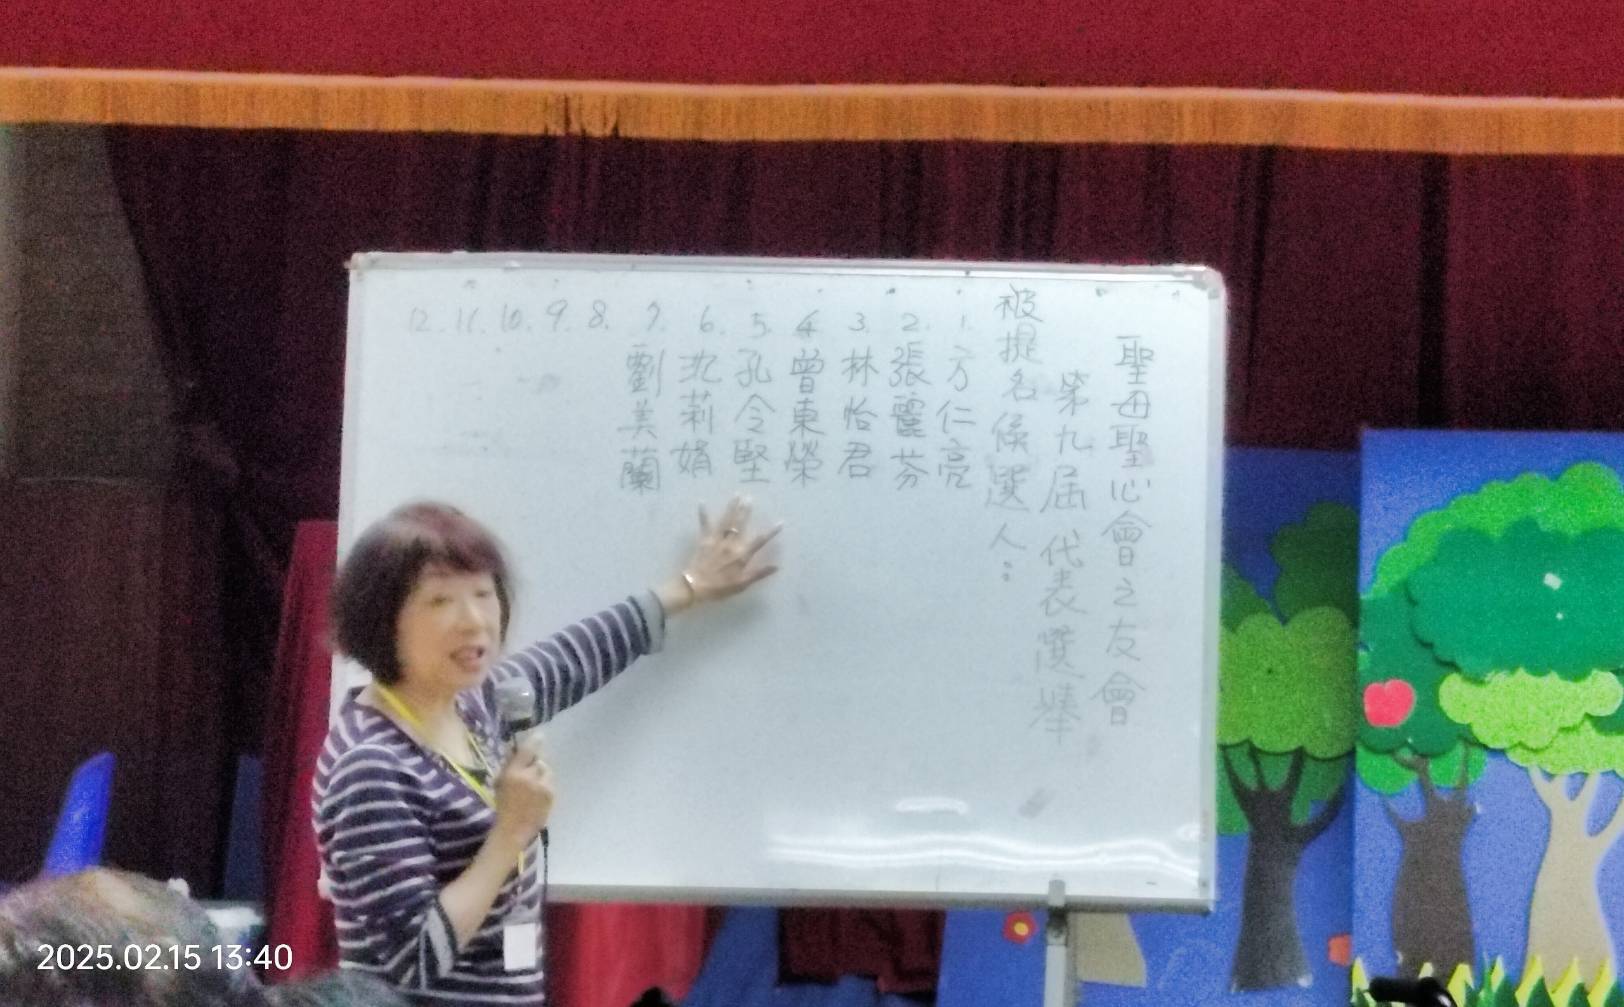 聖母聖心會之友會
第九屆代表選舉
被提名候選人：
1. 方仁亮
2. 張麗芬
3. 林怡君
4. 曾東榮
5. 孔令堅
6. 沈莉娟
7. 劉美蘭
8.
9.
10.
11.
12.
2025.02.15 13:40